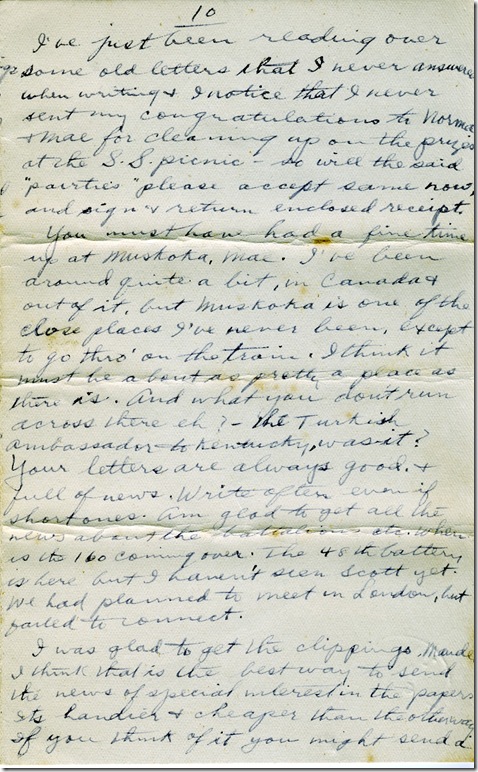 10
I've just been reading over
some old letters that I never answered
when writing & I notice that I never
sent my congratulations to Norma
& Mae for cleaning up on the prizes
at the S.S. picnic - so will the said
"pairties" please accept same now,
and sign & return enclosed receipt.
You must have had a fine time
up at Muskoka, Mae. I've been
around quite a bit, in Canada &
out of it, but Muskoka is one of the
close places I've never been, except
to go thro' on the train. I think it
must be about as pretty a place as
there is. And what you don't run
across there eh? - the Turkish
ambassador to Kentucky, was it?
Your letters are always good. &
full of news. Write often even if
short ones. Am glad to get all the
news about the battalions etc. When
is the 160 coming over. The 48th battery
is here but I haven't seen Scott yet.
We had planned to meet in London, but
failed to connect.
I was glad to get the clippings, Maude
I think that is the best way to send
the news of special interest in the papers
its handier & cheaper than the other way
If you think of it you might send a